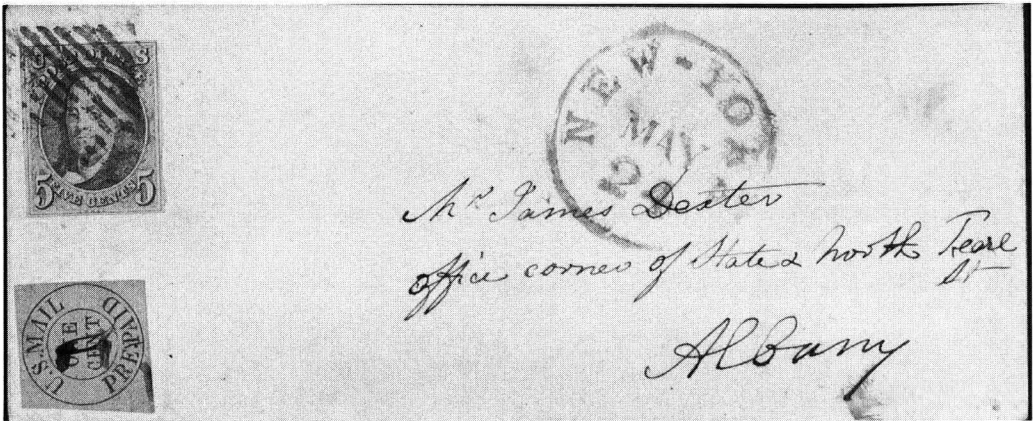 5 FIVE CENTS 5
U.S. MAIL
ONE
CENT
PREPAID
NEW-YORK
MAY
Mr James Dexter
office corner of State & North Pearl
St
Albany